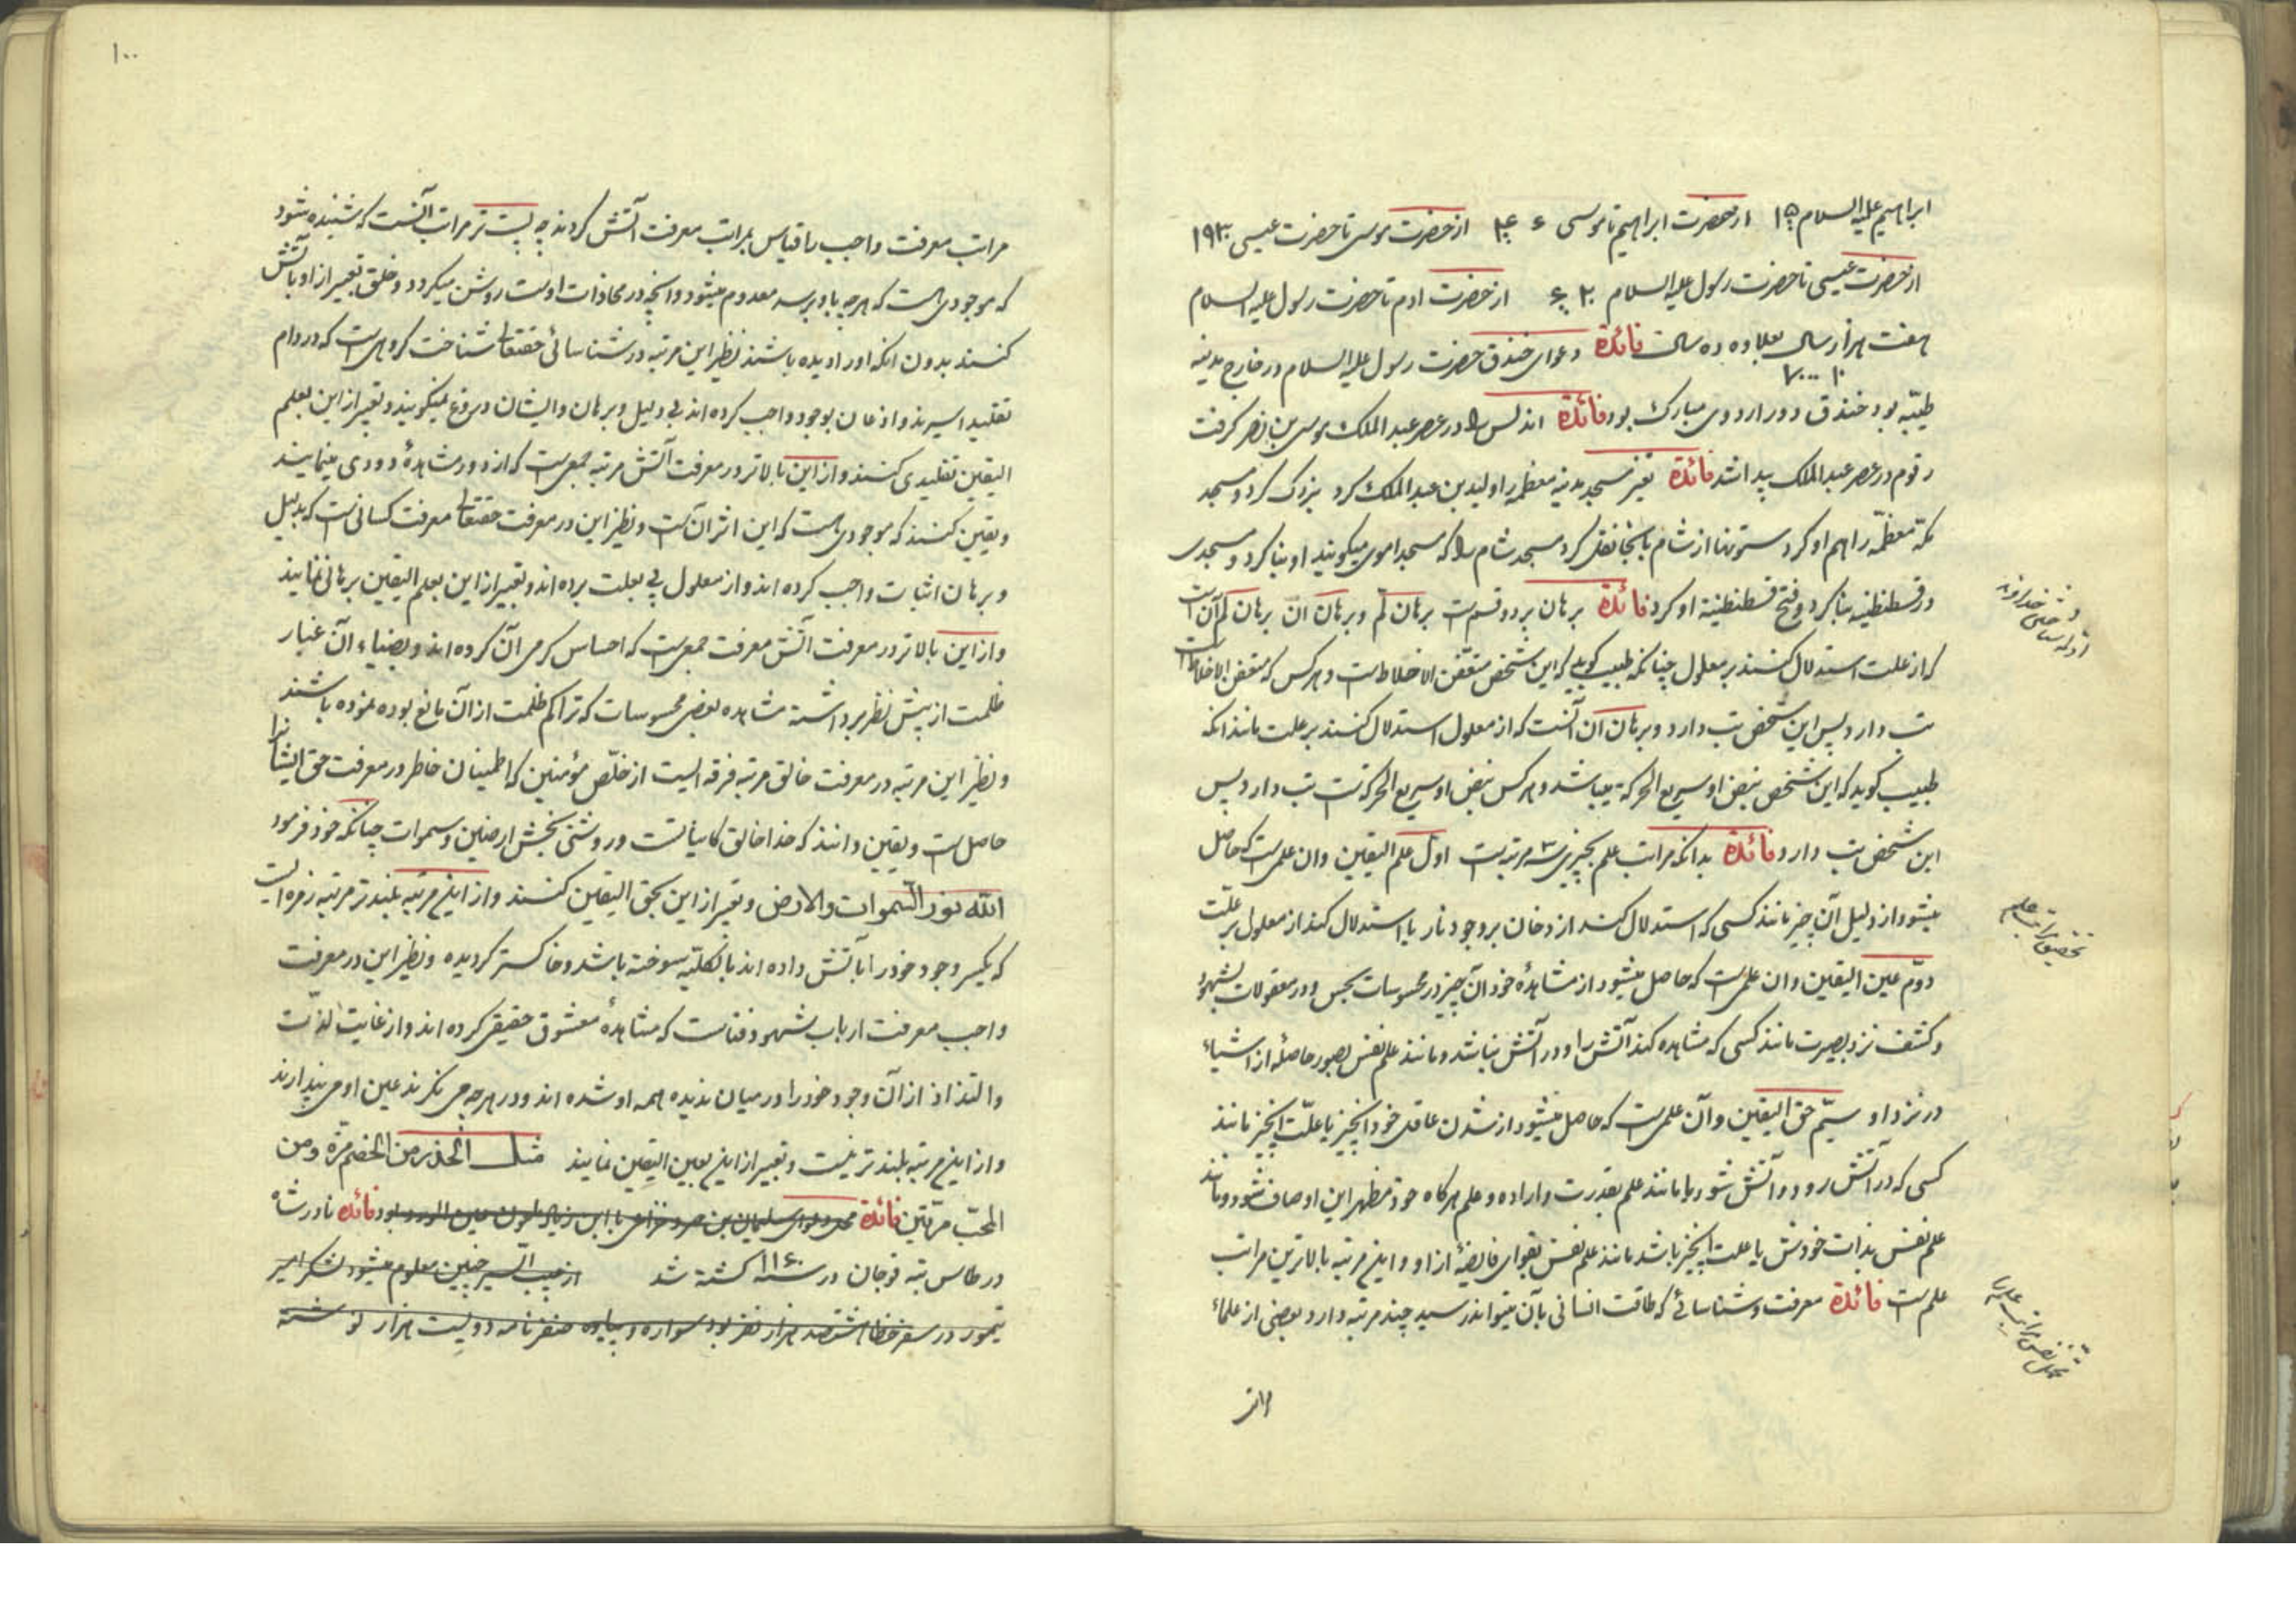 ابراهیم علیه السلام از حضرت ابراهیم تا موسی از حضرت موسی تا حضرت عیسی
از حضرت عیسی تا حضرت رسول علیه السلام از حضرت ادم تا حضرت رسول علیه السلام
هفت هزار سال بعلاوه ده سالست فائدة دعوای خندق حضرت رسول علیه السلام در خارج مدینه
۷۰۰۰ ۱۰
طیّبه بود خندق دور اردوی مبارک بود فائدة اندلس را در عصر عبد الملک موسی بن نصر کرفت
در عصر عبد الملک پیدا شد فائدة تغیر مسجد مدینه معظمه را ولید بن عبد الملک کرد بزرک کرد و مسجد
مکّه معظّمه را هم او کرد ستونها از شام بانجا نقل کرد مسجد شام را که مسجد اموی میکویند او بنا کرد و مسجدی
در قسطنطنیه بنا کرد و فتح قسطنطنیة او کرد فائدة برهان بر دو قسمست برهان لم و برهان ان برهان لم آن است
که از علت استدلال کنند بر معلول چنانکه طبیب کوید که این شخص متعّفن الاخلاط است و هر کس که متعفن الاخلاط است
تب دارد پس این شخص تب دارد و برهان ان آنست که از معلول استدلال کنند بر علت مانند انکه
طبیب کوید که این شخص نبض او سریع الحرکة میباشد و هر کس نبض او سریع الحرکة است تب دارد پس
این شخص تب دارد فائدة بدانکه مراتب علم بچیزی سه مرتبه است اول علم الیقین وان علمی است که حاصل
میشود از دلیل آن چیز مانند کسی که استدلال کند از دخان بر وجود نار یا استدلال کند از معلول بر علّت
دوّم عین الیقین وان علمی است که حاصل میشود از مشاهدهٔ خود آن چیز در محسوسات بحس و در معقولات بشهود
و کشف نزد بصیرت مانند کسی که مشاهده کند آتش را و در آتش نباشد و مانند علم نفس بصور حاصله از اشیاء
در نزد او سیّم حق الیقین وآن علمی است که حاصل میشود از شدن عاقل خود آنچیز یا علّت آنچیز مانند
کسی که در آتش رود و آتش شود یا مانند علم بقدرت واراده و علم هرکاه خود مظهر این اوصاف شود و مانند
علم نفس بذات خودش یا علت آنچیز باشد مانند علم نفس بقوای فایضهٔ از او و این مرتبه بالاترین مراتب
علم است فائدة معرفت و شناسائی که طاقت انسانی بآن میتواند رسید چند مرتبه دارد بعضی از علماء
مراتب
تحقیق مراتب علم
۱۰۰
مراتب معرفت واجب با قیاس بمراتب معرفت آتش کردند چه پست تر مراتب آنست که شنیده شود
که موجودی هست که هرچه باو برسد معدوم میشود وانچه در محاذات اوست روشن میکردد و خلق تعبیر از او بآتش
کنند بدون انکه او را دیده باشند نظیر این مرتبه در شناسائی حقتعالی شناخت کروهی است که در دام
تقلید اسیرند و اذعان بوجود واجب کرده اند بی دلیل و برهان وایشان دروغ نمیکویند و تعبیر از این بعلم
الیقین تقلیدی کنند و از این بالاتر در معرفت آتش مرتبه جمعی است که از دور مشاهدهٔ دودی مینمایند
و یقین کنند که موجودی هست که این اثر آن است و نظیر این در معرفت حقتعالی معرفت کسانی است که بدلیل
و برهان اثبات واجب کرده اند و از معلول پی بعلت برده اند و تعبیر از این بعلم الیقین برهانی نمایند
و از این بالاتر در معرفت آتش معرفت جمعی است که احساس کرمی آن کرده اند و بضیاء آن غبار
ظلمت از پیش نظر برداشته مشاهده بعضی محسوسات که تراکم ظلمت از آن مانع بوده نموده باشند
و نظیر این مرتبه در معرفت خالق مرتبه فرقه ایست از خلّص مؤمنین که اطمینان خاطر در معرفت حق ایشانرا
حاصل است و یقین دانند که خدا خالق کایناتست و روشنی بخش ارضین و سموات چنانکه خود فرمود
الله نور السّموات والارض و تعبیر از این بحق الیقین کنند و از این مرتبه بلندتر مرتبه زمره ایست
که یکسر وجود خود را بآتش داده اند بالکلیّه سوخته باشد و خاکستر کردیده و نظیر این در معرفت
واجب معرفت ارباب شهود و فناست که مشاهدهٔ معشوق حقیقی کرده اند و از غایت لذّت
والتذاذ از آن وجود خود را در میان ندیده همه او شده اند و در هرچه می نکرند عین او می پندارند
و از این مرتبه بلندتر نیست و تعبیر از این بعین الیقین نمایند مثل الحذر من الخصم مرّة ومن
المحبّ مرّتین فائدة دعوای سلیمان بن صرد خزاعی با ابن زیاد ملعون عین الورد بود فائده نادر شاه
در طاس تپه قوجان در سنه ۱۱۶۰ کشته شد از حبیب السیر چنین معلوم میشود لشکر امیر
تیمور در سفر خطا هشتصد هزار نفر بود سواره و پیاده ظفر نامه دویست هزار نوشته